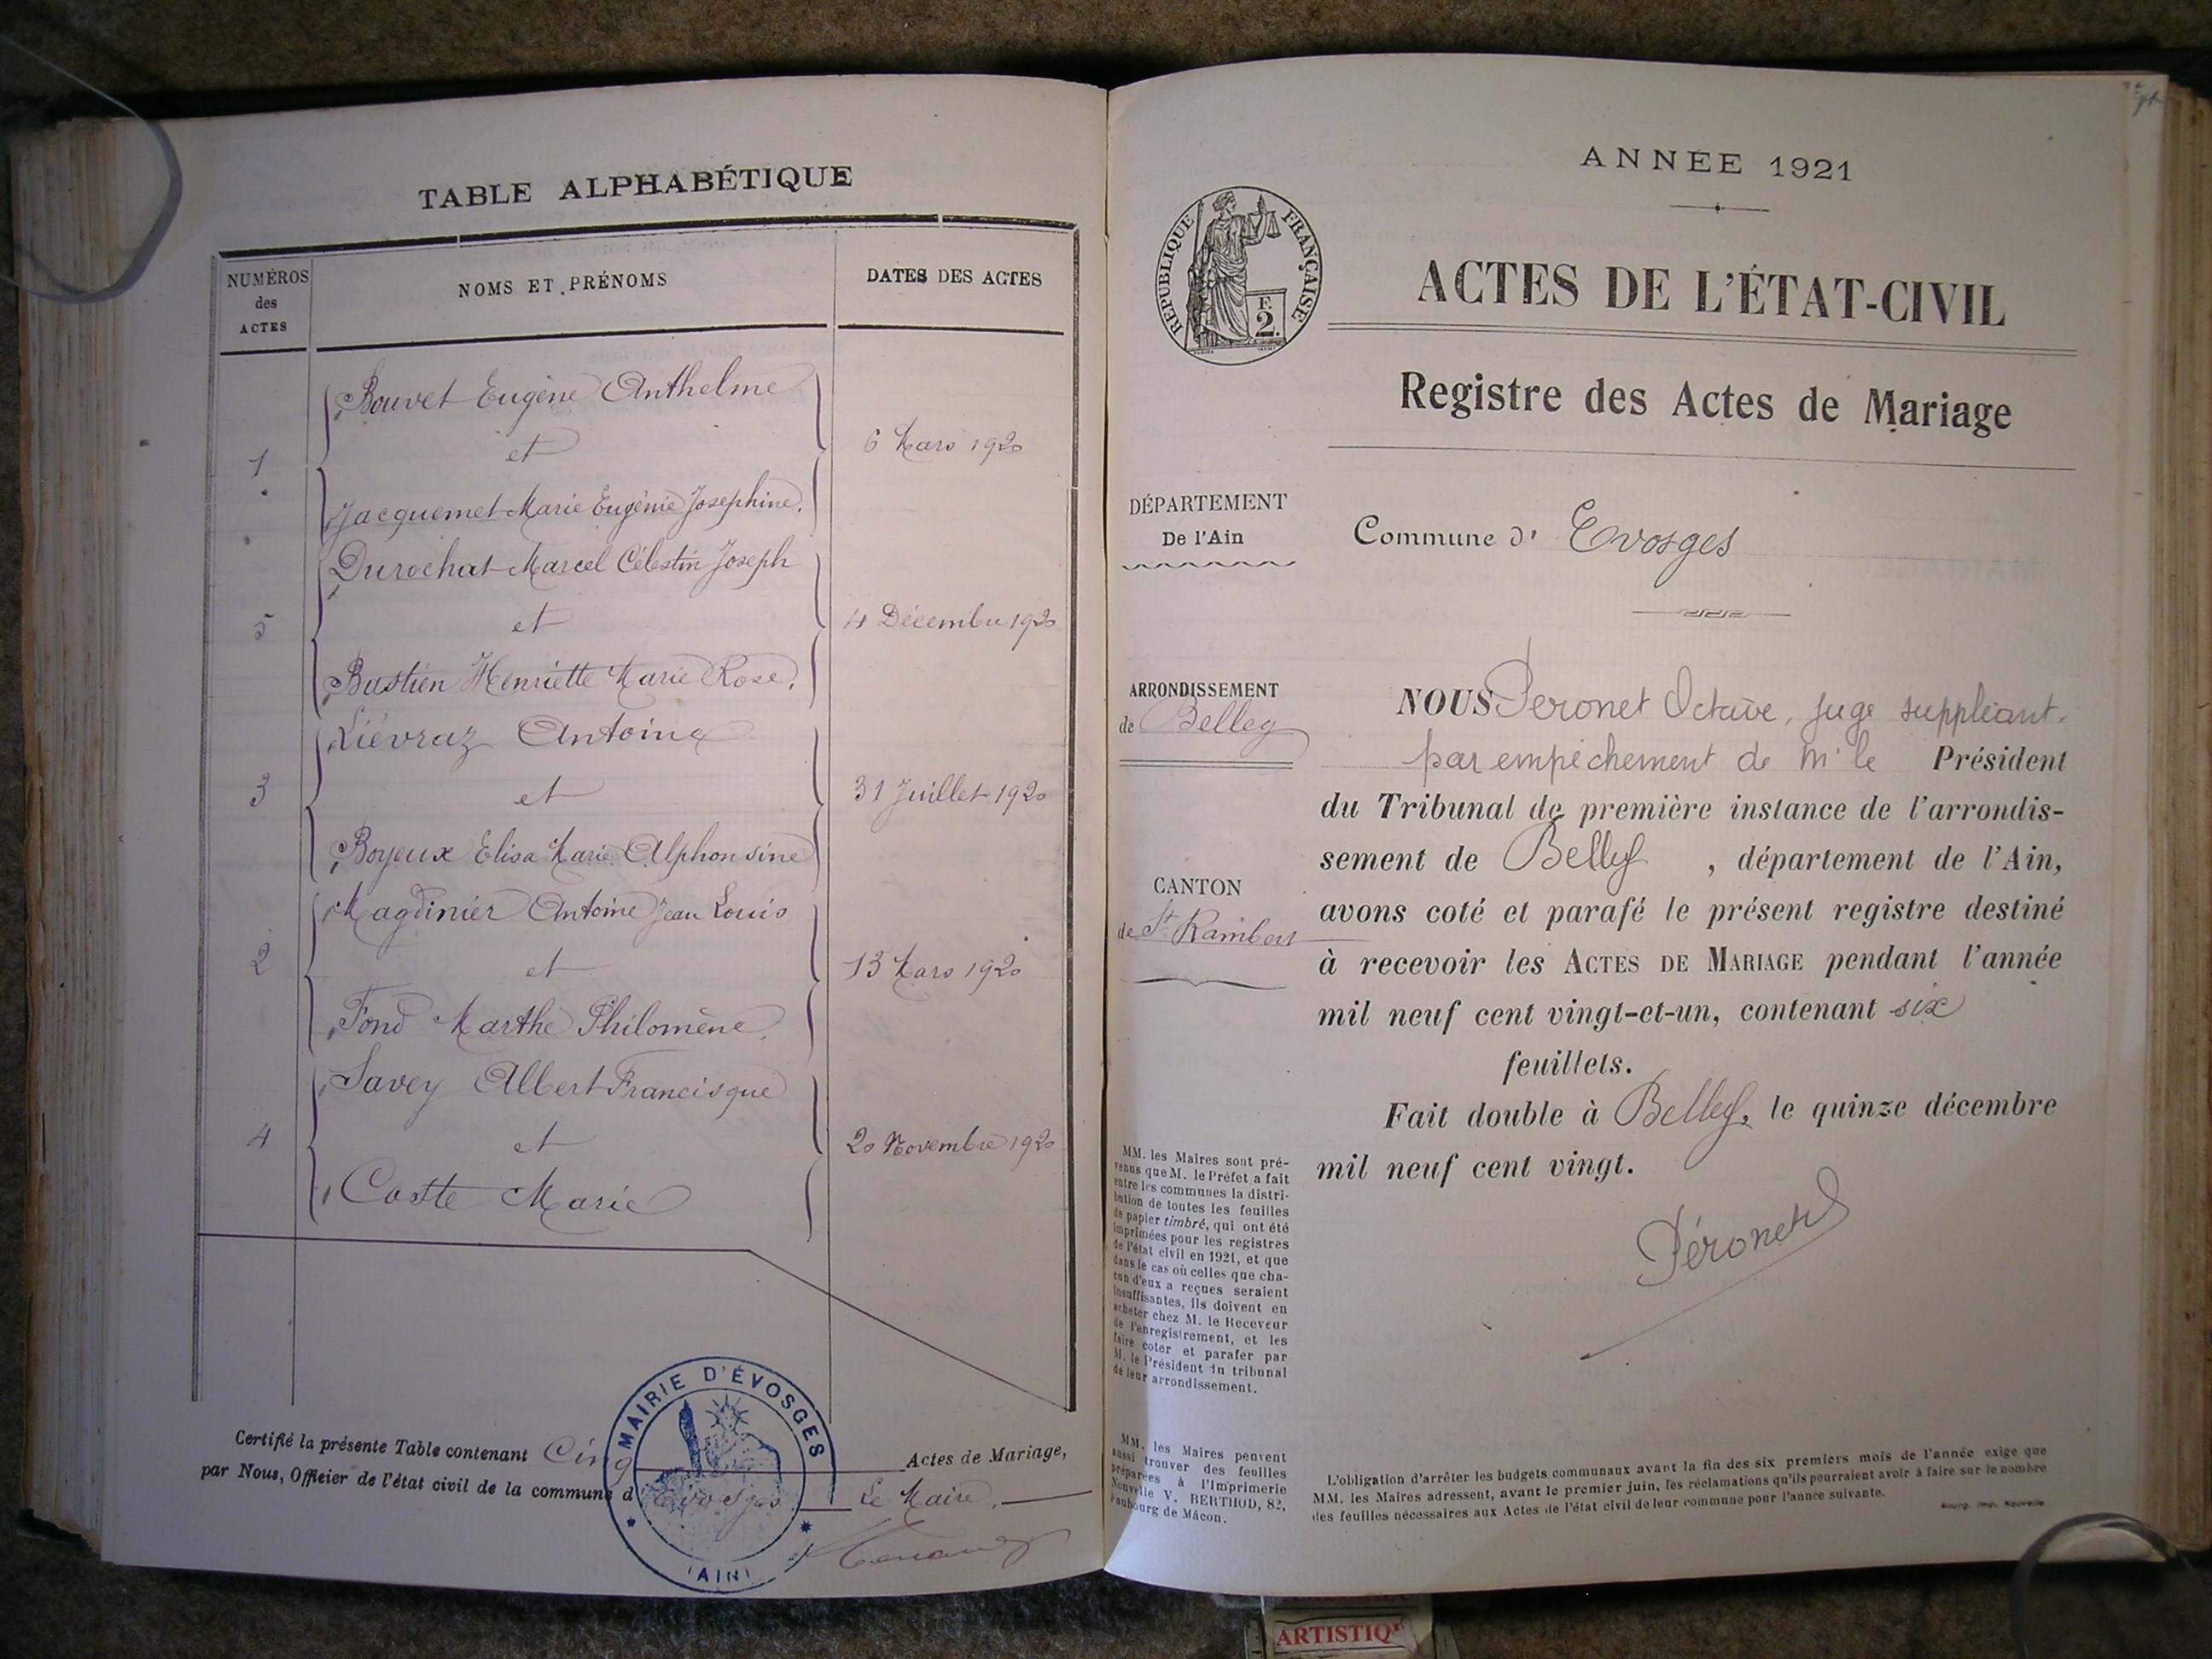 TABLE ALPHABÉTIQUE
NUMÉROS
des
ACTES
NOMS ET PRÉNOMS
DATES DES ACTES
Bouvet Eugène Anthelme
et
1
6 Mars 1920
Jacquemet Marie Eugénie Josephine.
Durochat Marcel Célestin Joseph
et
5
4 Décembre 1920
Bastien Henriette Marie Rose.
Liévraz Antoine
et
3
31 Juillet 1920
Boyeux Elisa Marie Alphonsine
Magdinier Antoine Jean Louis
et
2
13 Mars 1920
Fond Marthe Philomène.
Savey Albert Francisque
et
4
20 Novembre 1920
Costte Marie
Certifié la présente Table contenant Cinq Actes de Mariage,
par Nous, Officier de l'état civil de la commune d'Evosges Le Maire,
MAIRIE D'ÉVOSGES
(AIN)
ANNÉE 1921
RÉPUBLIQUE FRANÇAISE
F.
2.
ACTES DE L'ÉTAT-CIVIL
Registre des Actes de Mariage
DÉPARTEMENT
De l'Ain
Commune d' Evosges
ARRONDISSEMENT
de Belley
CANTON
de St Rambert
NOUS Péronet Octave, juge suppléant.
par empêchement de Mr le Président
du Tribunal de première instance de l'arrondis-
sement de Belley , département de l'Ain,
avons coté et parafé le présent registre destiné
à recevoir les ACTES DE MARIAGE pendant l'année
mil neuf cent vingt-et-un, contenant six
feuillets.
Fait double à Belley, le quinze décembre
mil neuf cent vingt.
Péronet
MM. les Maires sont pré-
venus que M. le Préfet a fait
entre les communes la distri-
bution de toutes les feuilles
de papier timbré, qui ont été
imprimées pour les registres
de l'état civil en 1921, et que
dans le cas où celles que cha-
cun d'eux a reçues seraient
insuffisantes, ils doivent en
acheter chez M. le Receveur
de l'enregistrement, et les
faire coter et parafer par
M. le Président du tribunal
de leur arrondissement.
MM. les Maires peuvent
aussi trouver des feuilles
préparées à l'Imprimerie
Nouvelle V. BERTHOD, 82,
faubourg de Mâcon.
L'obligation d'arrêter les budgets communaux avant la fin des six premiers mois de l'année exige que
MM. les Maires adressent, avant le premier juin, les réclamations qu'ils pourraient avoir à faire sur le nombre
des feuilles nécessaires aux Actes de l'état civil de leur commune pour l'année suivante.
Bourg. Imp. Nouvelle
ARTISTIQ